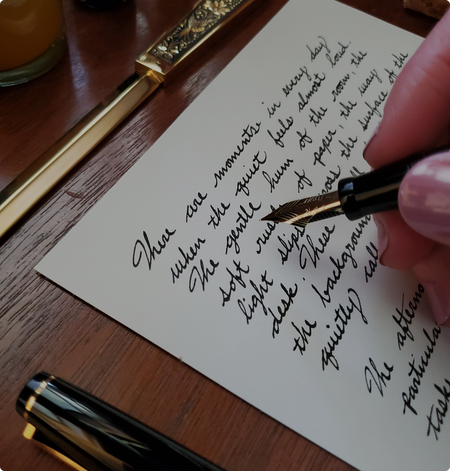 There are moments in every day
when the quiet feels almost loud.
The gentle hum of the room, the
soft of paper, the way
light across the surface of the
desk. These
the background
quietly
The
particular
tasks